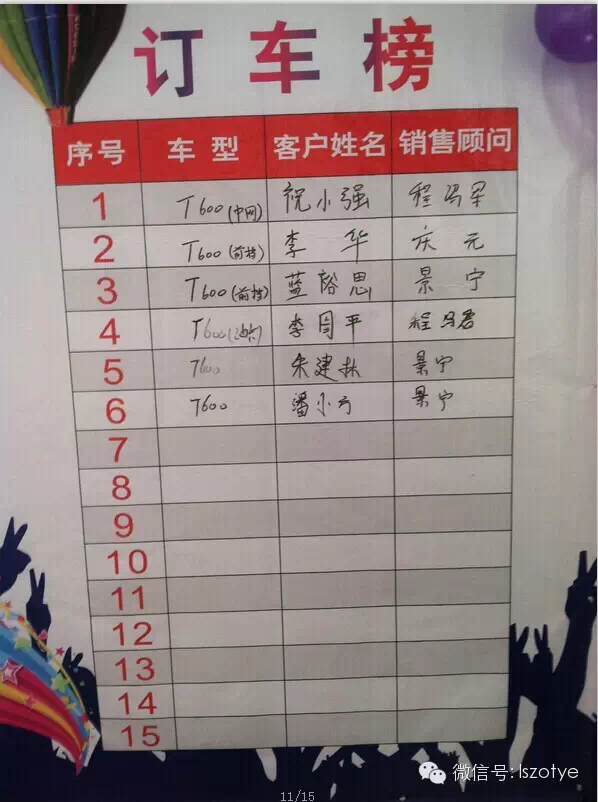 订车榜
序号 车型 客户姓名 销售顾问
1 T600(中网) 祝小强
2 T600(前档) 李华 庆元
3 T600(前档) 蓝裕思 景宁
4 T600 李周平
5 T600 朱建林 景宁
6 T600 潘小方 景宁
7
8
9
10
11
12
13
14
15
微信号: lszotye
11/15